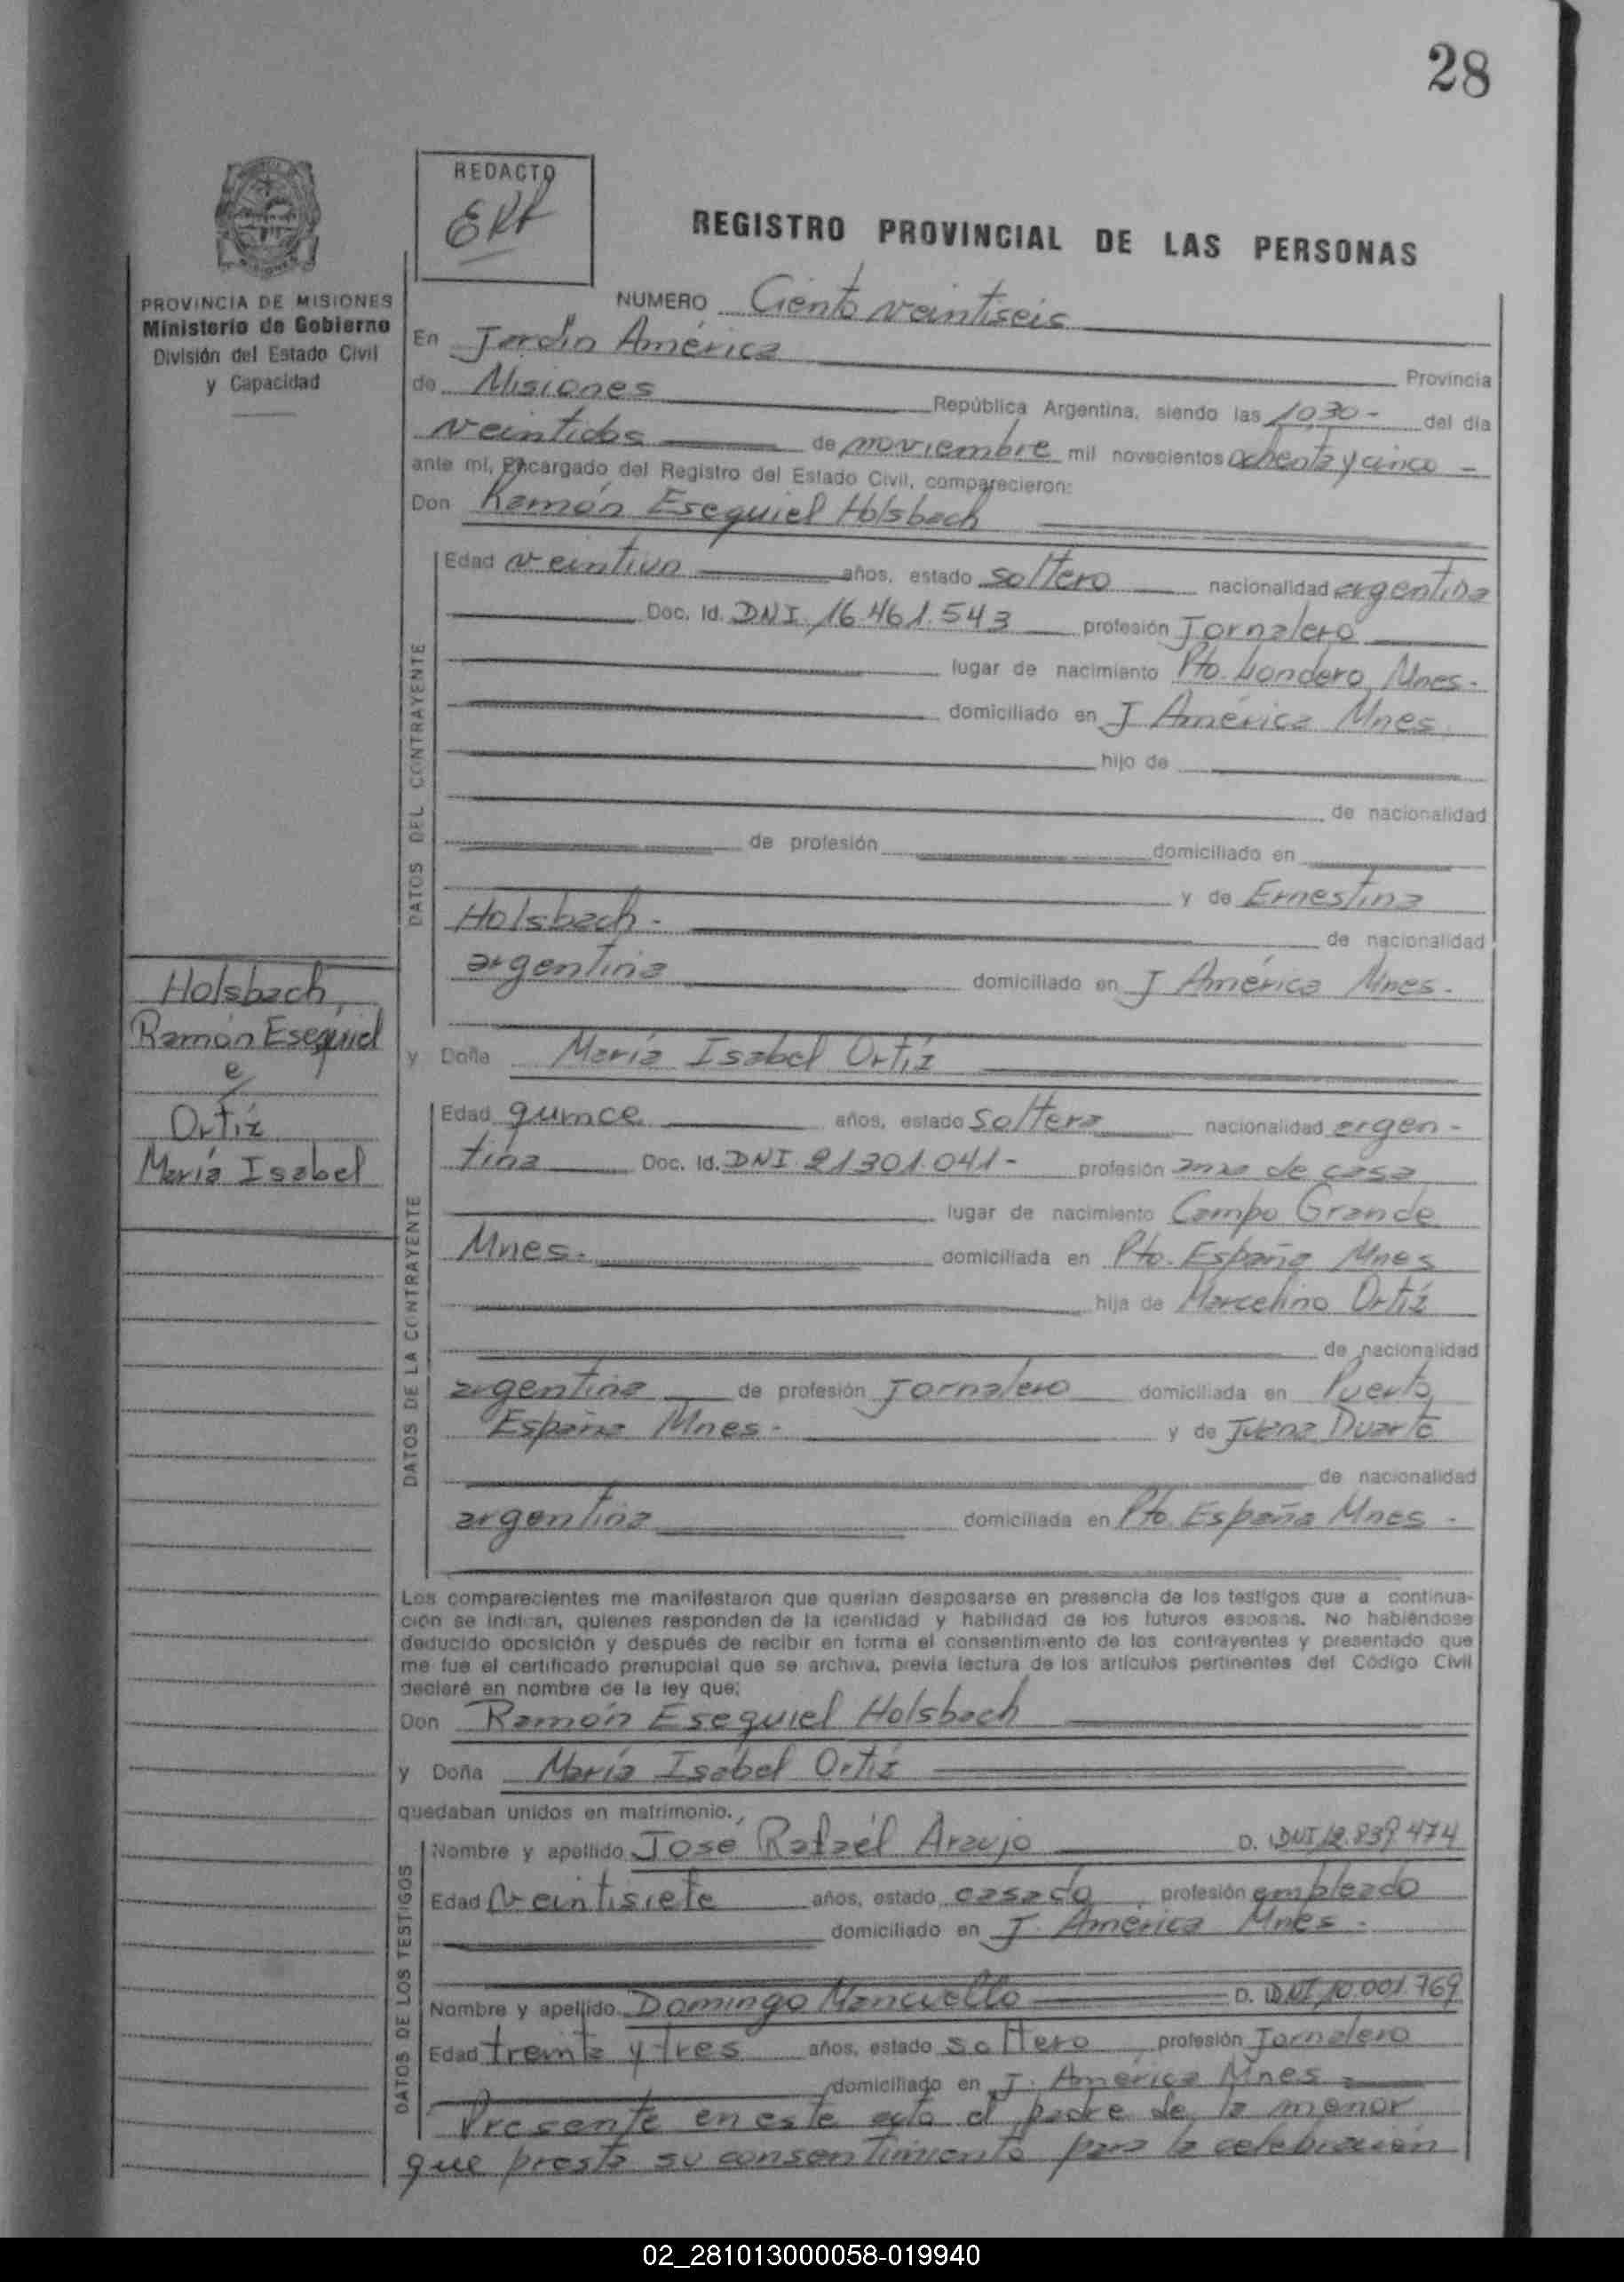 28
REDACTO
REGISTRO PROVINCIAL DE LAS PERSONAS
PROVINCIA DE MISIONES
Ministerio de Gobierno
División del Estado Civil
y Capacidad
NUMERO Ciento veintiseis
En Jardín América Provincia
de Misiones República Argentina, siendo las 10,30 - del día
veintidos de noviembre mil novecientos ochenta y cinco -
ante mí, Encargado del Registro del Estado Civil, comparecieron:
Don Ramón Esequiel Holsbach
DATOS DEL CONTRAYENTE
Edad veintiun años, estado soltero nacionalidad argentina
Doc. Id. DNI. 16.461.543 profesión Jornalero
lugar de nacimiento Pto. Mnes.
domiciliado en J América Mnes.
hijo de
de nacionalidad
de profesión domiciliado en
y de Ernestina
Holsbach - de nacionalidad
argentina domiciliado en J América Mnes.
Holsbach,
Ramón Esequiel
e
Ortíz
María Isabel
y Doña María Isabel Ortíz
DATOS DE LA CONTRAYENTE
Edad quince años, estado soltera nacionalidad argen-
tina Doc. Id. DNI. 21301.041- profesión ama de casa
lugar de nacimiento Campo Grande
Mnes. domiciliada en Pto. España Mnes
hija de Marcelino Ortíz
de nacionalidad
argentina de profesión Jornalero domiciliada en Puerto
España Mnes. y de Juana Duarte
de nacionalidad
argentina domiciliada en Pto. España Mnes -
Los comparecientes me manifestaron que querían desposarse en presencia de los testigos que a continua-
ción se indican, quienes responden de la identidad y habilidad de los futuros esposos. No habiéndose
deducido oposición y después de recibir en forma el consentimiento de los contrayentes y presentado que
me fue el certificado prenupcial que se archiva, previa lectura de los artículos pertinentes del Código Civil
declaré en nombre de la ley que:
Don Ramón Esequiel Holsbach
y Doña María Isabel Ortíz
quedaban unidos en matrimonio.
DATOS DE LOS TESTIGOS
Nombre y apellido José Rafaél Araujo D. I. DNI 12.839.474
Edad Veintisiete años, estado casado profesión empleado
domiciliado en J. América Mnes.
Nombre y apellido Domingo Mancuello D. I. DNI 10.001.769
Edad treinta y tres años, estado soltero profesión Jornalero
domiciliado en J. América Mnes
Presente en este acto el padre de la menor
que presta su consentimiento para la celebración
02_281013000058-019940